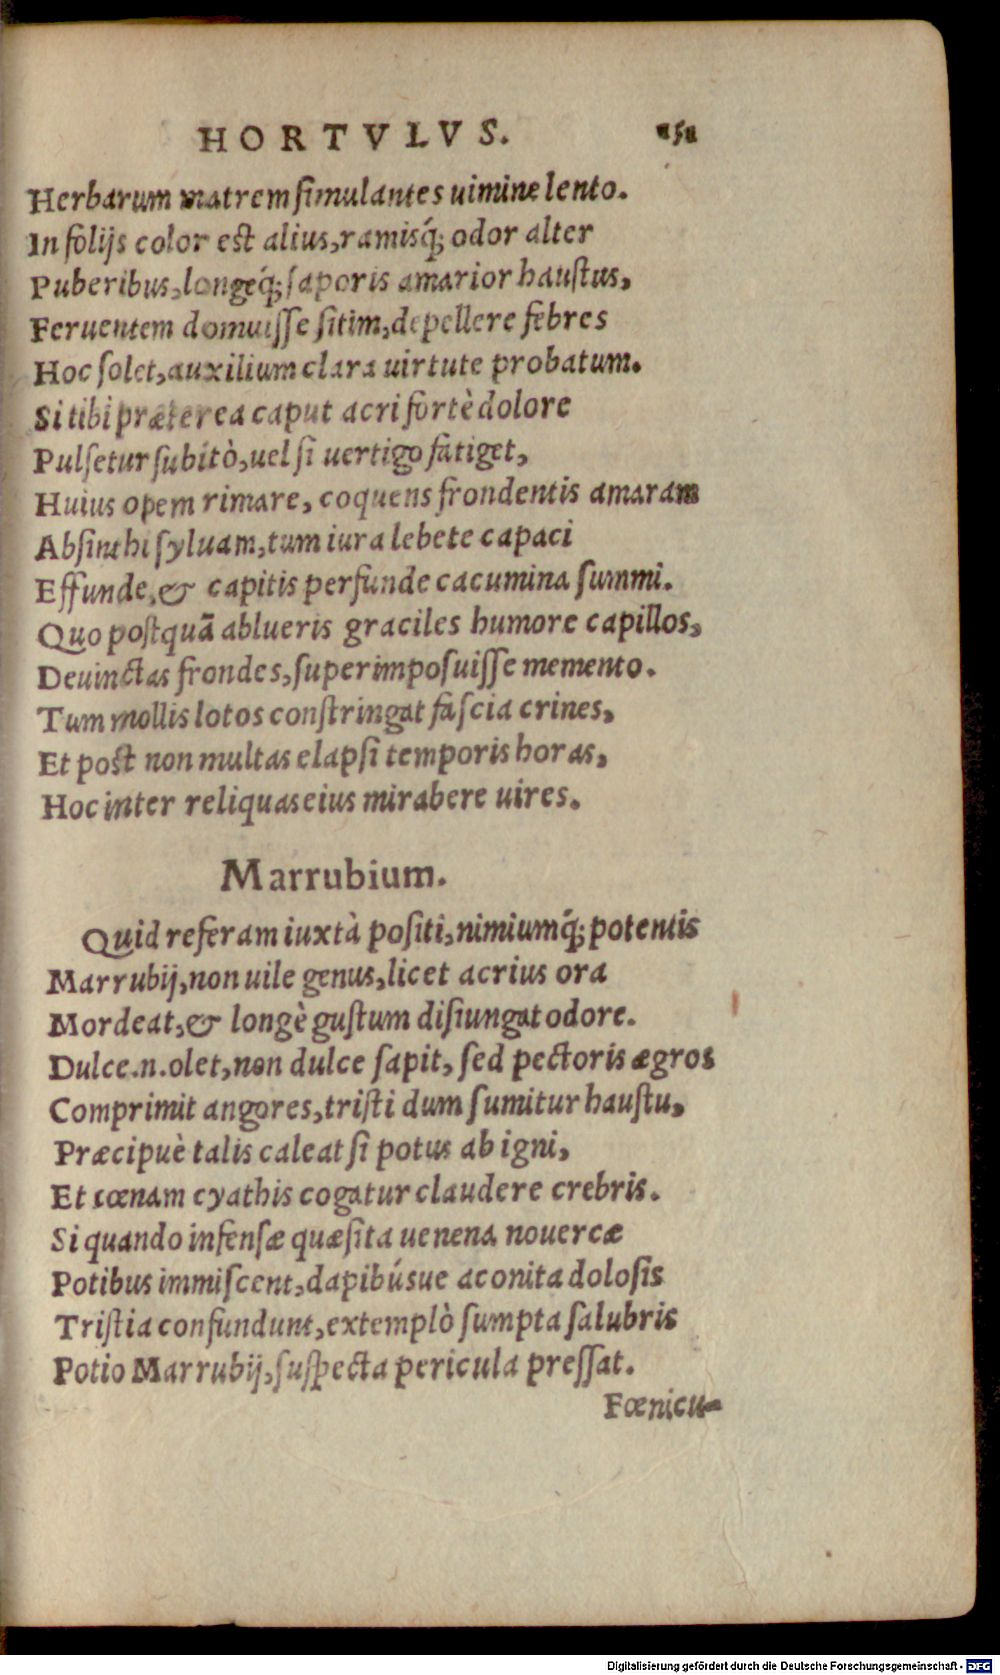 HORTVLVS.
Herbarum matrem simulantes uimine lento.
In folijs color est alius, ramisq́; odor alter
Puberibus, longeq́; saporis amarior haustus,
Feruentem domuisse sitim, depellere febres
Hoc solet, auxilium clara uirtute probatum.
Si tibi præterea caput acri fortè dolore
Pulsetur subitò, uel si uertigo fatiget,
Huius opem rimare, coquens frondentis amaram
Absinthi syluam, tum iura lebete capaci
Effunde, & capitis perfunde cacumina summi.
Quo postquã ablueris graciles humore capillos,
Deuinctas frondes, superimposuisse memento.
Tum mollis lotos constringat fascia crines,
Et post non multas elapsi temporis horas,
Hoc inter reliquas eius mirabere uires.
Marrubium.
Quid referam iuxtà positi, nimiumq́; potentis
Marrubij, non uile genus, licet acrius ora
Mordeat, & longè gustum disiungat odore.
Dulce .n. olet, non dulce sapit, sed pectoris ægros
Comprimit angores, tristi dum sumitur haustu,
Præcipuè talis caleat si potus ab igni,
Et cœnam cyathis cogatur claudere crebris.
Si quando infensæ quæsita uenena nouercæ
Potibus immiscent, dapibúsue aconita dolosis
Tristia confundunt, extemplò sumpta salubris
Potio Marrubij, suspecta pericula pressat.
Fœnicu-
Digitalisierung gefördert durch die Deutsche Forschungsgemeinschaft - DFG